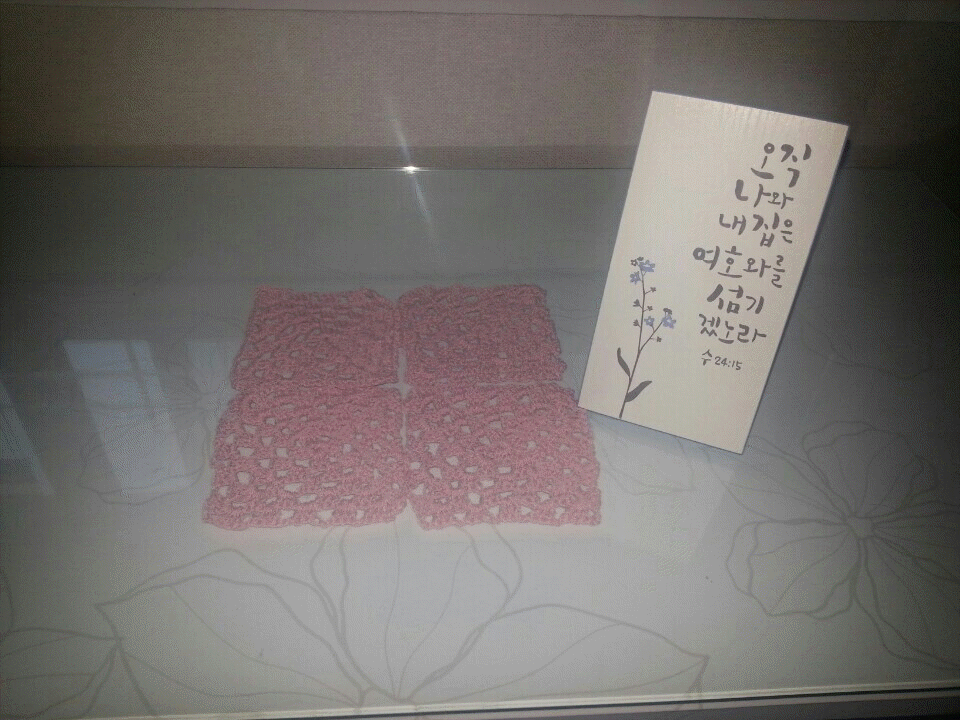 오직
나와
내 집은
여호와를
섬기
겠노라
수 24:15